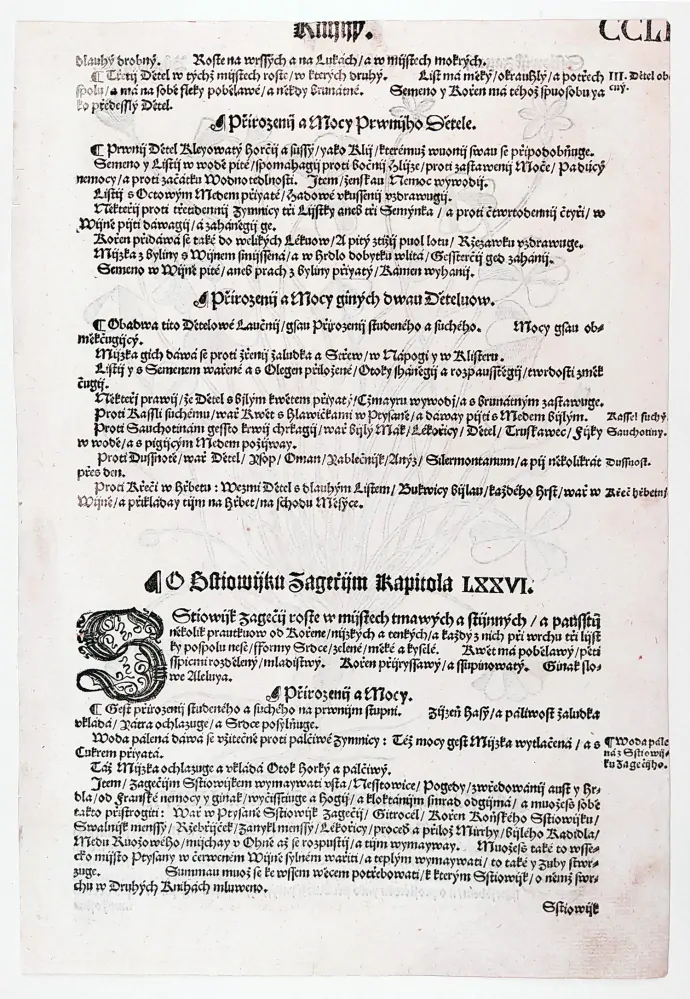 Knihy. CCLI
dlauhý drobný. Roste na wrssých a na Lukách/a w mijstech mokrých.
¶ Třetij Dětel w týchž mijstech roste/w kterých druhý. List má měký/okrauhlý/a potřech III. Dětel ob
spolu/a má na sobě fleky pobělawé/a někdy brunátné. Semeno y Kořen má téhož spuosobu ya cný.
ko předesslý Dětel.
¶ Přirozenij a Mocy Prwnijho Dětele.
¶ Prwnij Dětel Kleyowatý Horčij a sussý/yako Klij/kterémuž wuonij swau se připodobňuge.
Semeno y Listij w wodě pité/spomáhagij proti bočnij Hlijze/proti zastawenij Moče/Padúcý
nemocy/a proti začátku Wodnotedlnosti. Item/ženskau Nemoc wywodij.
Listij s Octowým Medem přiyaté/Hadowé vkussenij vzdrawugij.
Někteřij proti třetidennij Zymnicy tři Lijstky aneb tři Semýnka/a proti čtwrtodennij čtyři/w
Wijně pijti dáwagij/a zahánegij ge.
Kořen přidáwá se také do welikých Lékuow/A pitý ztijži puol lotu/Ržezawku vzdrawuge.
Mijzka z byliny s Wijnem smijssená/a w Hrdlo dobytku wlitá/Gessterčij ged zahánij.
Semeno w Wijně pité/aneb prach z byliny přiyatý/Kámen wyhánij.
¶ Přirozenij a Mocy giných dwau Děteluow.
¶ Obadwa tito Dětelowé Laučnij/gsau Přirozenij studeného a suchého. Mocy gsau ob-
měkčugijcý.
Mijzka gich dáwá se proti žřenij žaludka a Střew/w Nápogi y w Klisteru.
Listij y s Semenem wařené a s Olegen přiložené/Otoky sháněgij a rozpausstěgij/twrdosti změk
čugij.
Někteřij prawij/že Dětel s bijlým kwětem přiyatý/Čžmayru wywodij/a s brunátným zastawuge.
Proti Kassli suchému/wař Kwět s Hlawičkami w Ptysáně/a dáway pijti s Medem bijlým. Kassel suchý.
Proti Sauchotinám gessto krwij chrkagij/wař bijlý Mák/Lékořicy/Dětel/Truskawec/Fijky Sauchotiny.
w wodě/a s pigijcým Medem požijway.
Proti Dussnotě/wař Dětel/Yzop/Oman/Yablečnijk/Anýz/Silermontanum/a pij několikrát Dussnost.
přes den.
Proti Křeči w Hřbetu: Wezmi Dětel s dlauhým Listem/Bukwicy bijlau/každého Hrst/wař w Křeč hřbetnij
Wijně/a přikláday tijm na Hřbet/na schodu Měsýce.
¶ O Sstiowijku Zagečijm Kapitola LXXVI.
Sstiowijk Zagečij roste w mijstech tmawých a stijnných/a pausstij
několik prautkuow od Kořene/nijzkých a tenkých/a každý z nich při wrchu tři lijst
ky pospolu nese/fformy Srdce/zelené/měké a kyselé. Kwět má pobělawý/pěti
sspicmi rozdělený/mladistwý. Kořen přijryssawý/a ssupinowatý. Ginák slo-
we Aleluya.
¶ Přirozenij a Mocy.
¶ Gest přirozenij studeného a suchého na prwnijm stupni. Žijzeň hasý/a páliwost žaludka
vkládá/Játra ochlazuge/a Srdce posylňuge.
Woda pálená dáwá se vžitečně proti pálčiwé Zymnicy: Též mocy gest Mijzka wytlačená/a s ¶ Woda pále
Cukrem přiyatá. ná z Sstiowij-
Táž Mijzka ochlazuge a vkládá Otok Horký a pálčiwý. ku Zagečijho.
Item/Zagečijm Sstiowijkem wymywati vsta/Nesstowice/Pogedy/zwředowánij aust y Hr-
dla/od Franské nemocy y ginák/wyčisstiuge a Hogij/a kloktánijm smrad odgijmá/a muožeš sobě
takto přistrogiti: Wař w Ptysáně Sstiowijk Zagečij/Gitrocel/Kořen Koňského Sstiowijku/
Swalnijk menssý/Ržebřijček/Zanykl menssý/Lékořicy/proceď a přilož Mirhy/bijlého Kadidla/
Medu Ruožowého/mijchay v Ohně až se rozpustij/a tijm wymyway. Muožeš také to wsse-
cko mijsto Ptysány w čerweném Wijně sylném wařiti/a teplým wymywati/to také y Zuby stwr-
zuge. Summau muož se ke wssem wěcem potřebowati/k kterým Sstiowijk/o němž swr-
chu w Druhých Knihách mluweno.
Sstiowijk